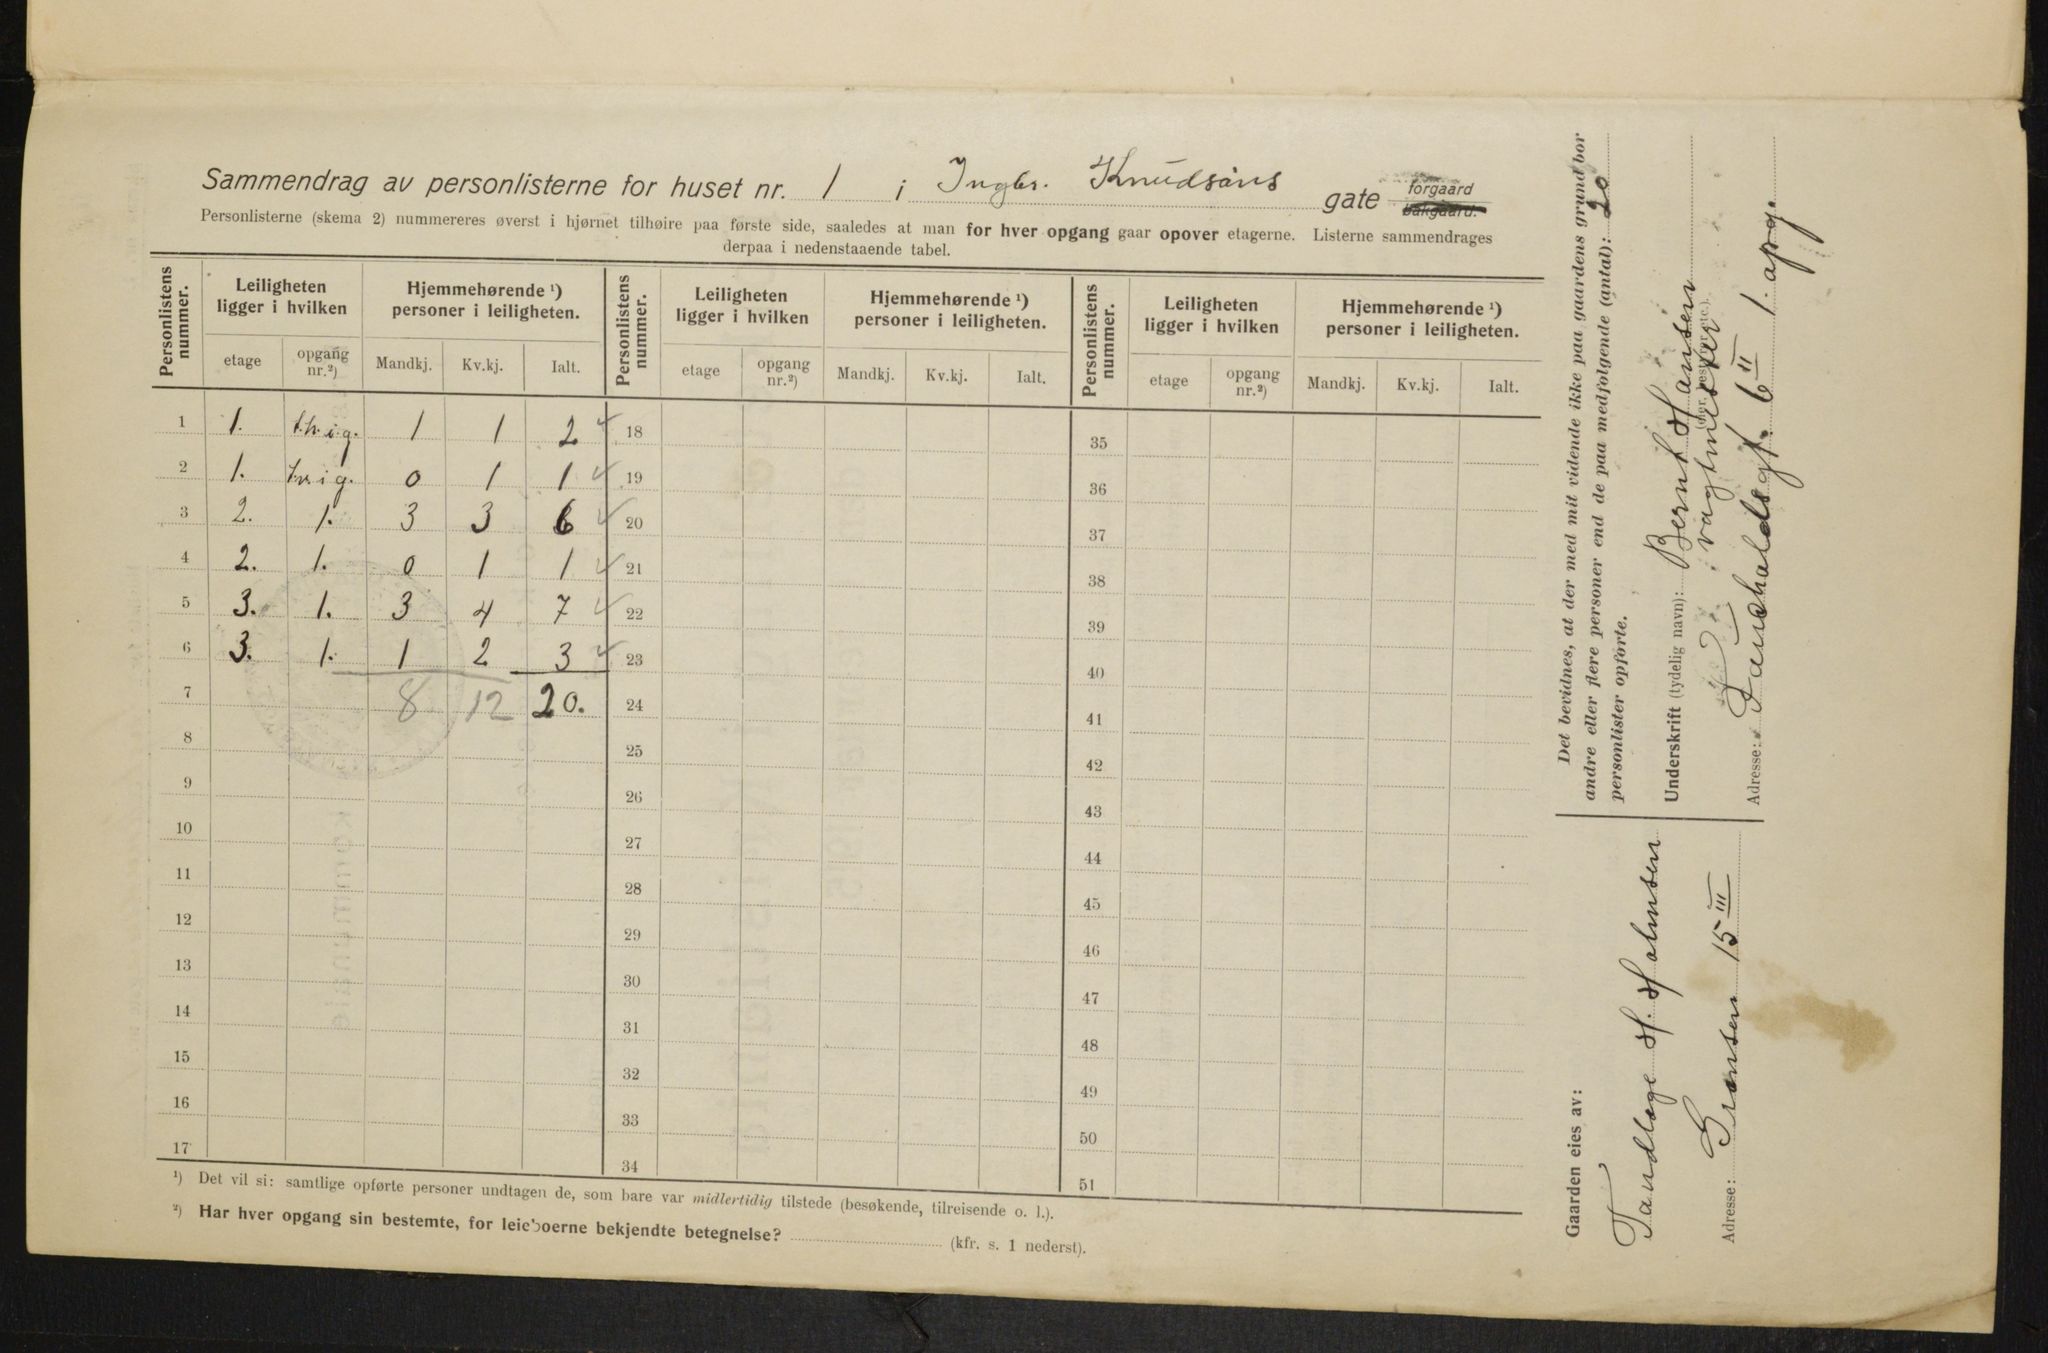 Sammendrag av personlisterne for huset nr. 1 i Ingbr. Knudsøns gate forgaard bakgaard.
Personlisterne (skema 2) nummereres øverst i hjørnet tilhøire paa første side, saaledes at man for hver opgang gaar opover etagerne. Listerne sammendrages
derpaa i nedenstaaende tabel.
Personlistens nummer. Leiligheten ligger i hvilken Hjemmehørende ¹) personer i leiligheten. Personlistens nummer. Leiligheten ligger i hvilken Hjemmehørende ¹) personer i leiligheten. Personlistens nummer. Leiligheten ligger i hvilken Hjemmehørende ¹) personer i leiligheten.
etage opgang nr.²) Mandkj. Kv.kj. Ialt. etage opgang nr.²) Mandkj. Kv.kj. Ialt. etage opgang nr.²) Mandkj. Kv.kj. Ialt.
1 1. 1 1 2 18 35
2 1. 0 1 1 19 36
3 2. 1. 3 3 6 20 37
4 2. 1. 0 1 1 21 38
5 3. 1. 3 4 7 22 39
6 3. 1. 1 2 3 23 40
7 8 12 20. 24 41
8 25 42
9 26 43
10 27 44
11 28 45
12 29 46
13 30 47
14 31 48
15 32 49
16 33 50
17 34 51
¹) Det vil si: samtlige opførte personer undtagen de, som bare var midlertidig tilstede (besøkende, tilreisende o. l.).
²) Har hver opgang sin bestemte, for leieboerne bekjendte betegnelse? (kfr. s. 1 nederst).
Det bevidnes, at der med mit vidende ikke paa gaardens grund bor
andre eller flere personer end de paa medfølgende (antal): 20
personlister opførte.
Underskrift (tydelig navn): Bernt Hansen
vagtmester
Adresse: 6 II 1. opg.
Gaarden eies av:
Tandlæge H. Holmsen
Adresse: Grænsen 15 III